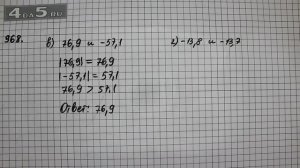 4DA5.RU
968.
в) 76,9 и -57,1
|76,9| = 76,9
|-57,1| = 57,1
76,9 > 57,1
Ответ: 76,9
г) -13,8 и -13,7